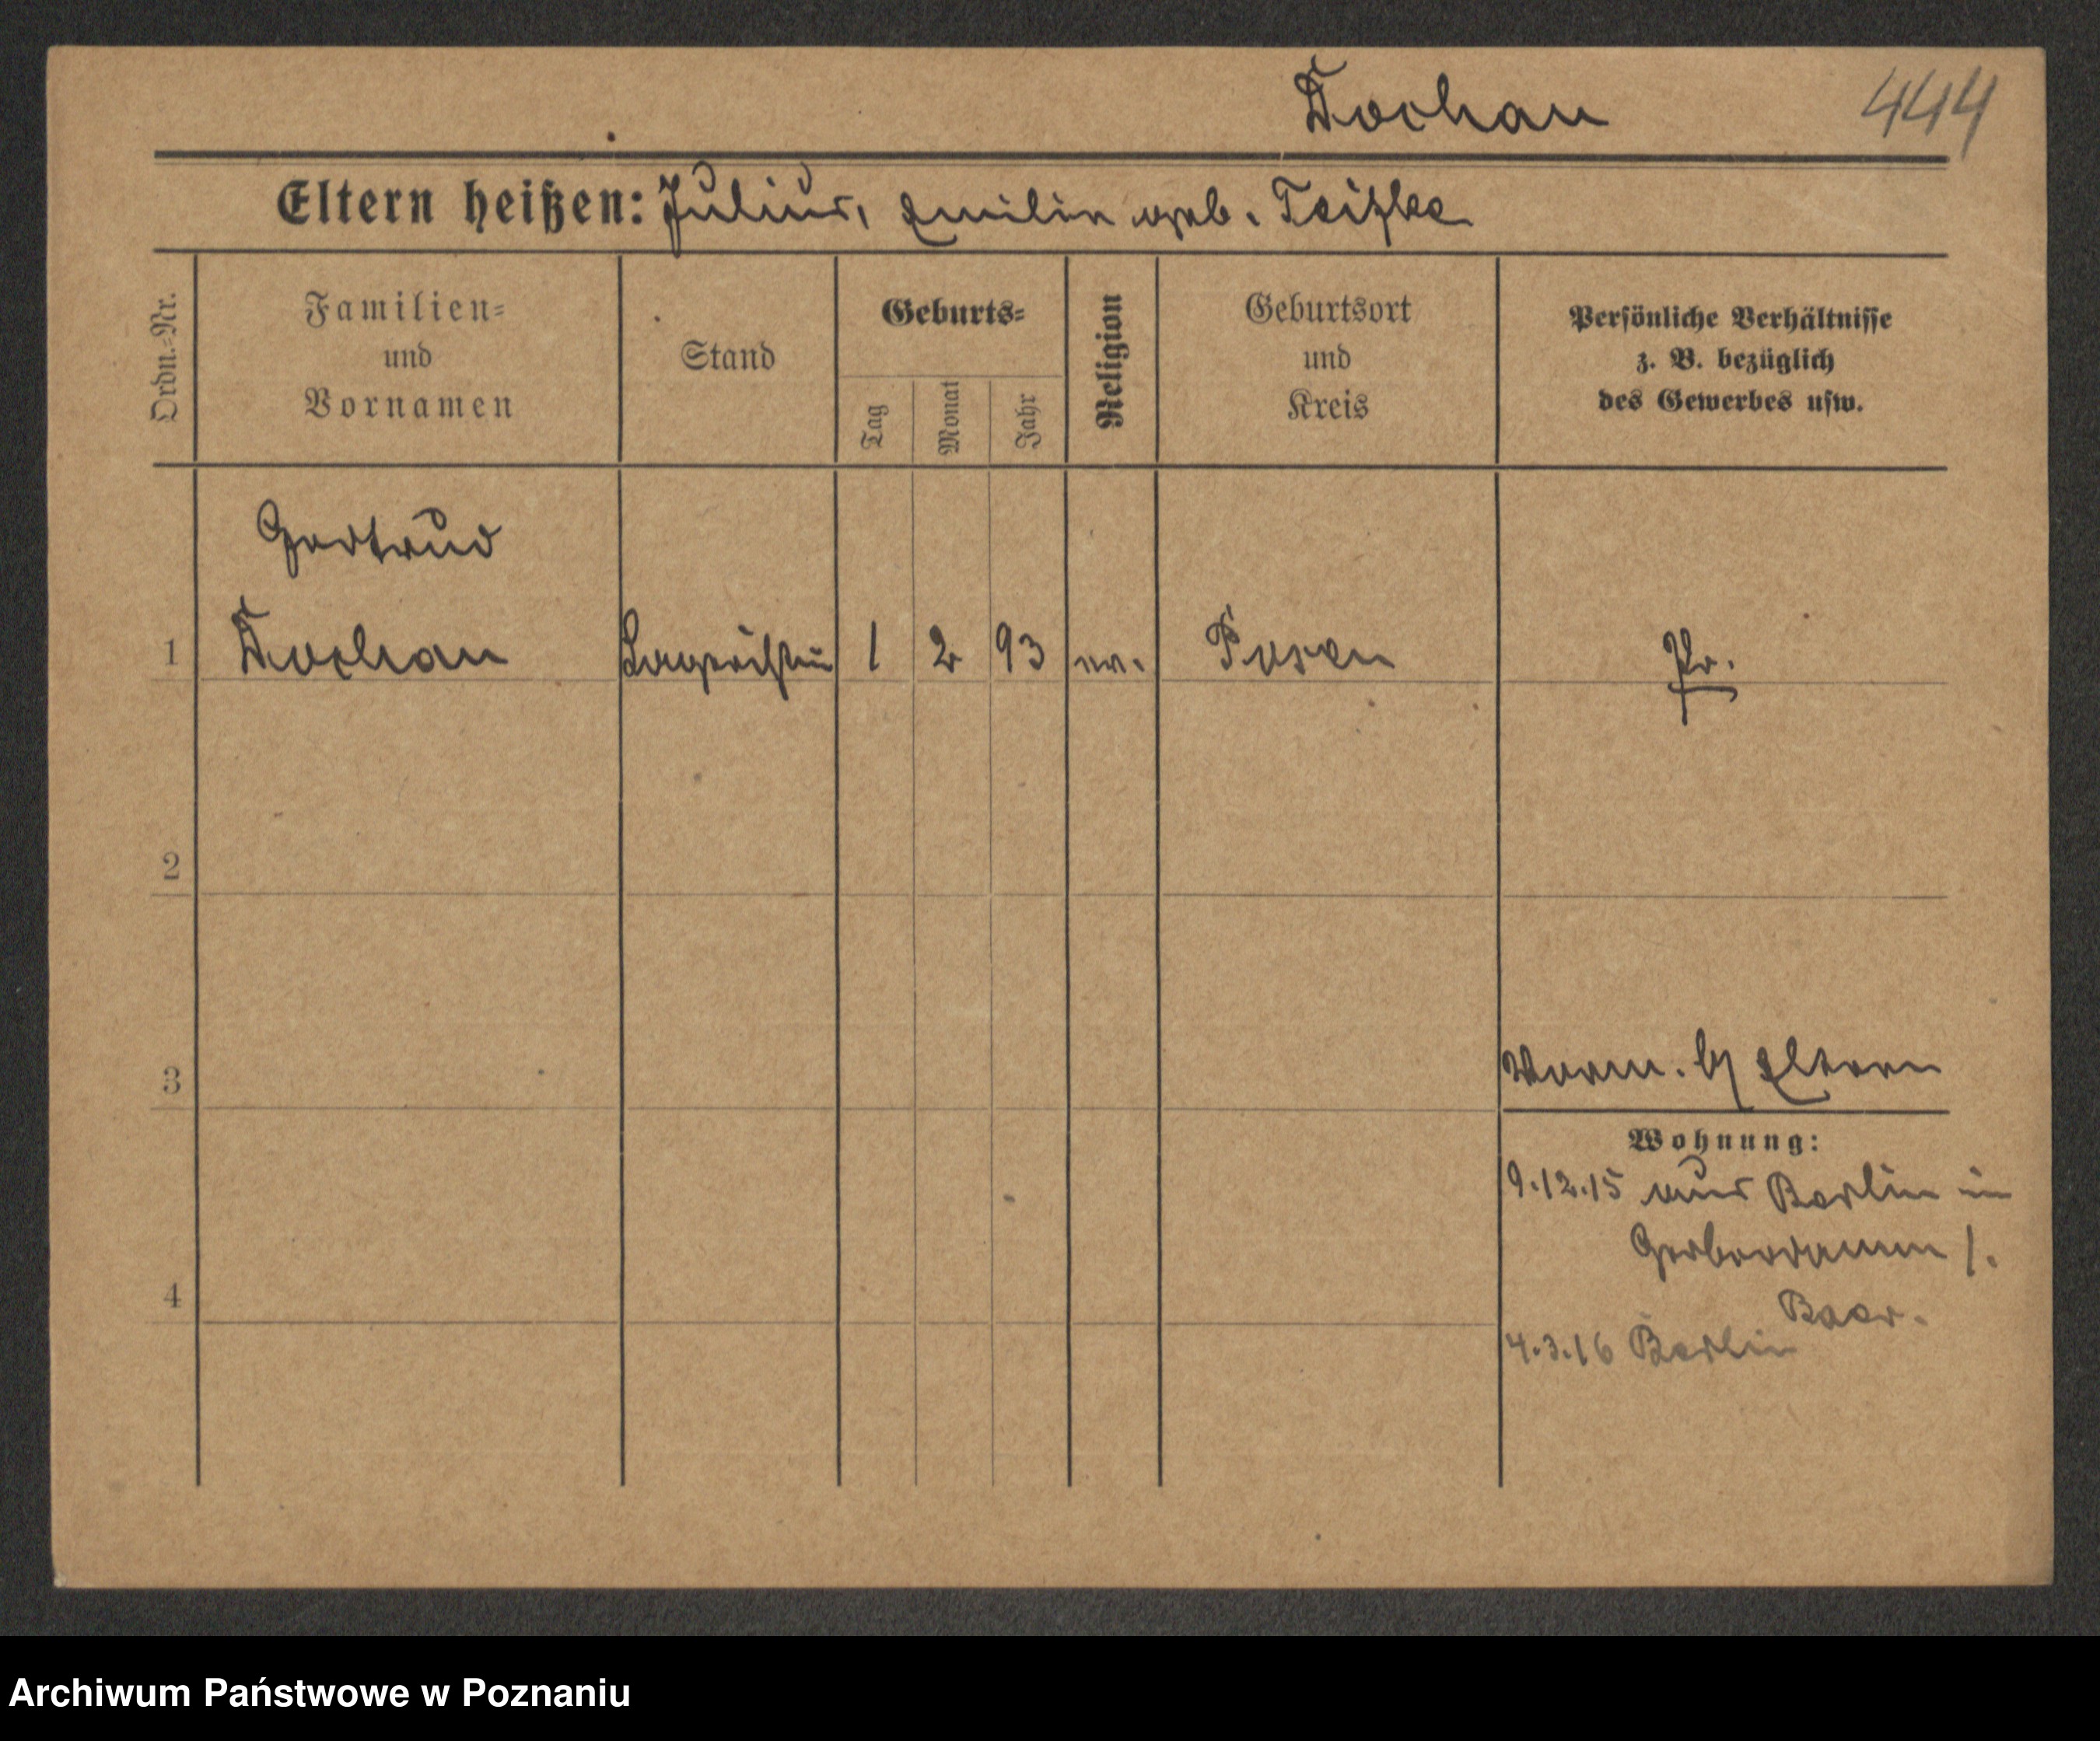 Tochan
444
Eltern heißen: Julius, Emilie geb. Teitzke
Ordn.-Nr.
Familien=
und
Vornamen
Stand
Geburts=
Tag
Monat
Jahr
Religion
Geburtsort
und
Kreis
Persönliche Verhältnisse
z. B. bezüglich
des Gewerbes usw.
Gertrud
1 Tochan Lageristin 1 2 93 ev. Posen Pr.
2
3
Vorm. Eltern
Wohnung:
9.12.15 aus Berlin in
Gerberdamm 1.
4
Baer.
4.3.16 Berlin
Archiwum Państwowe w Poznaniu